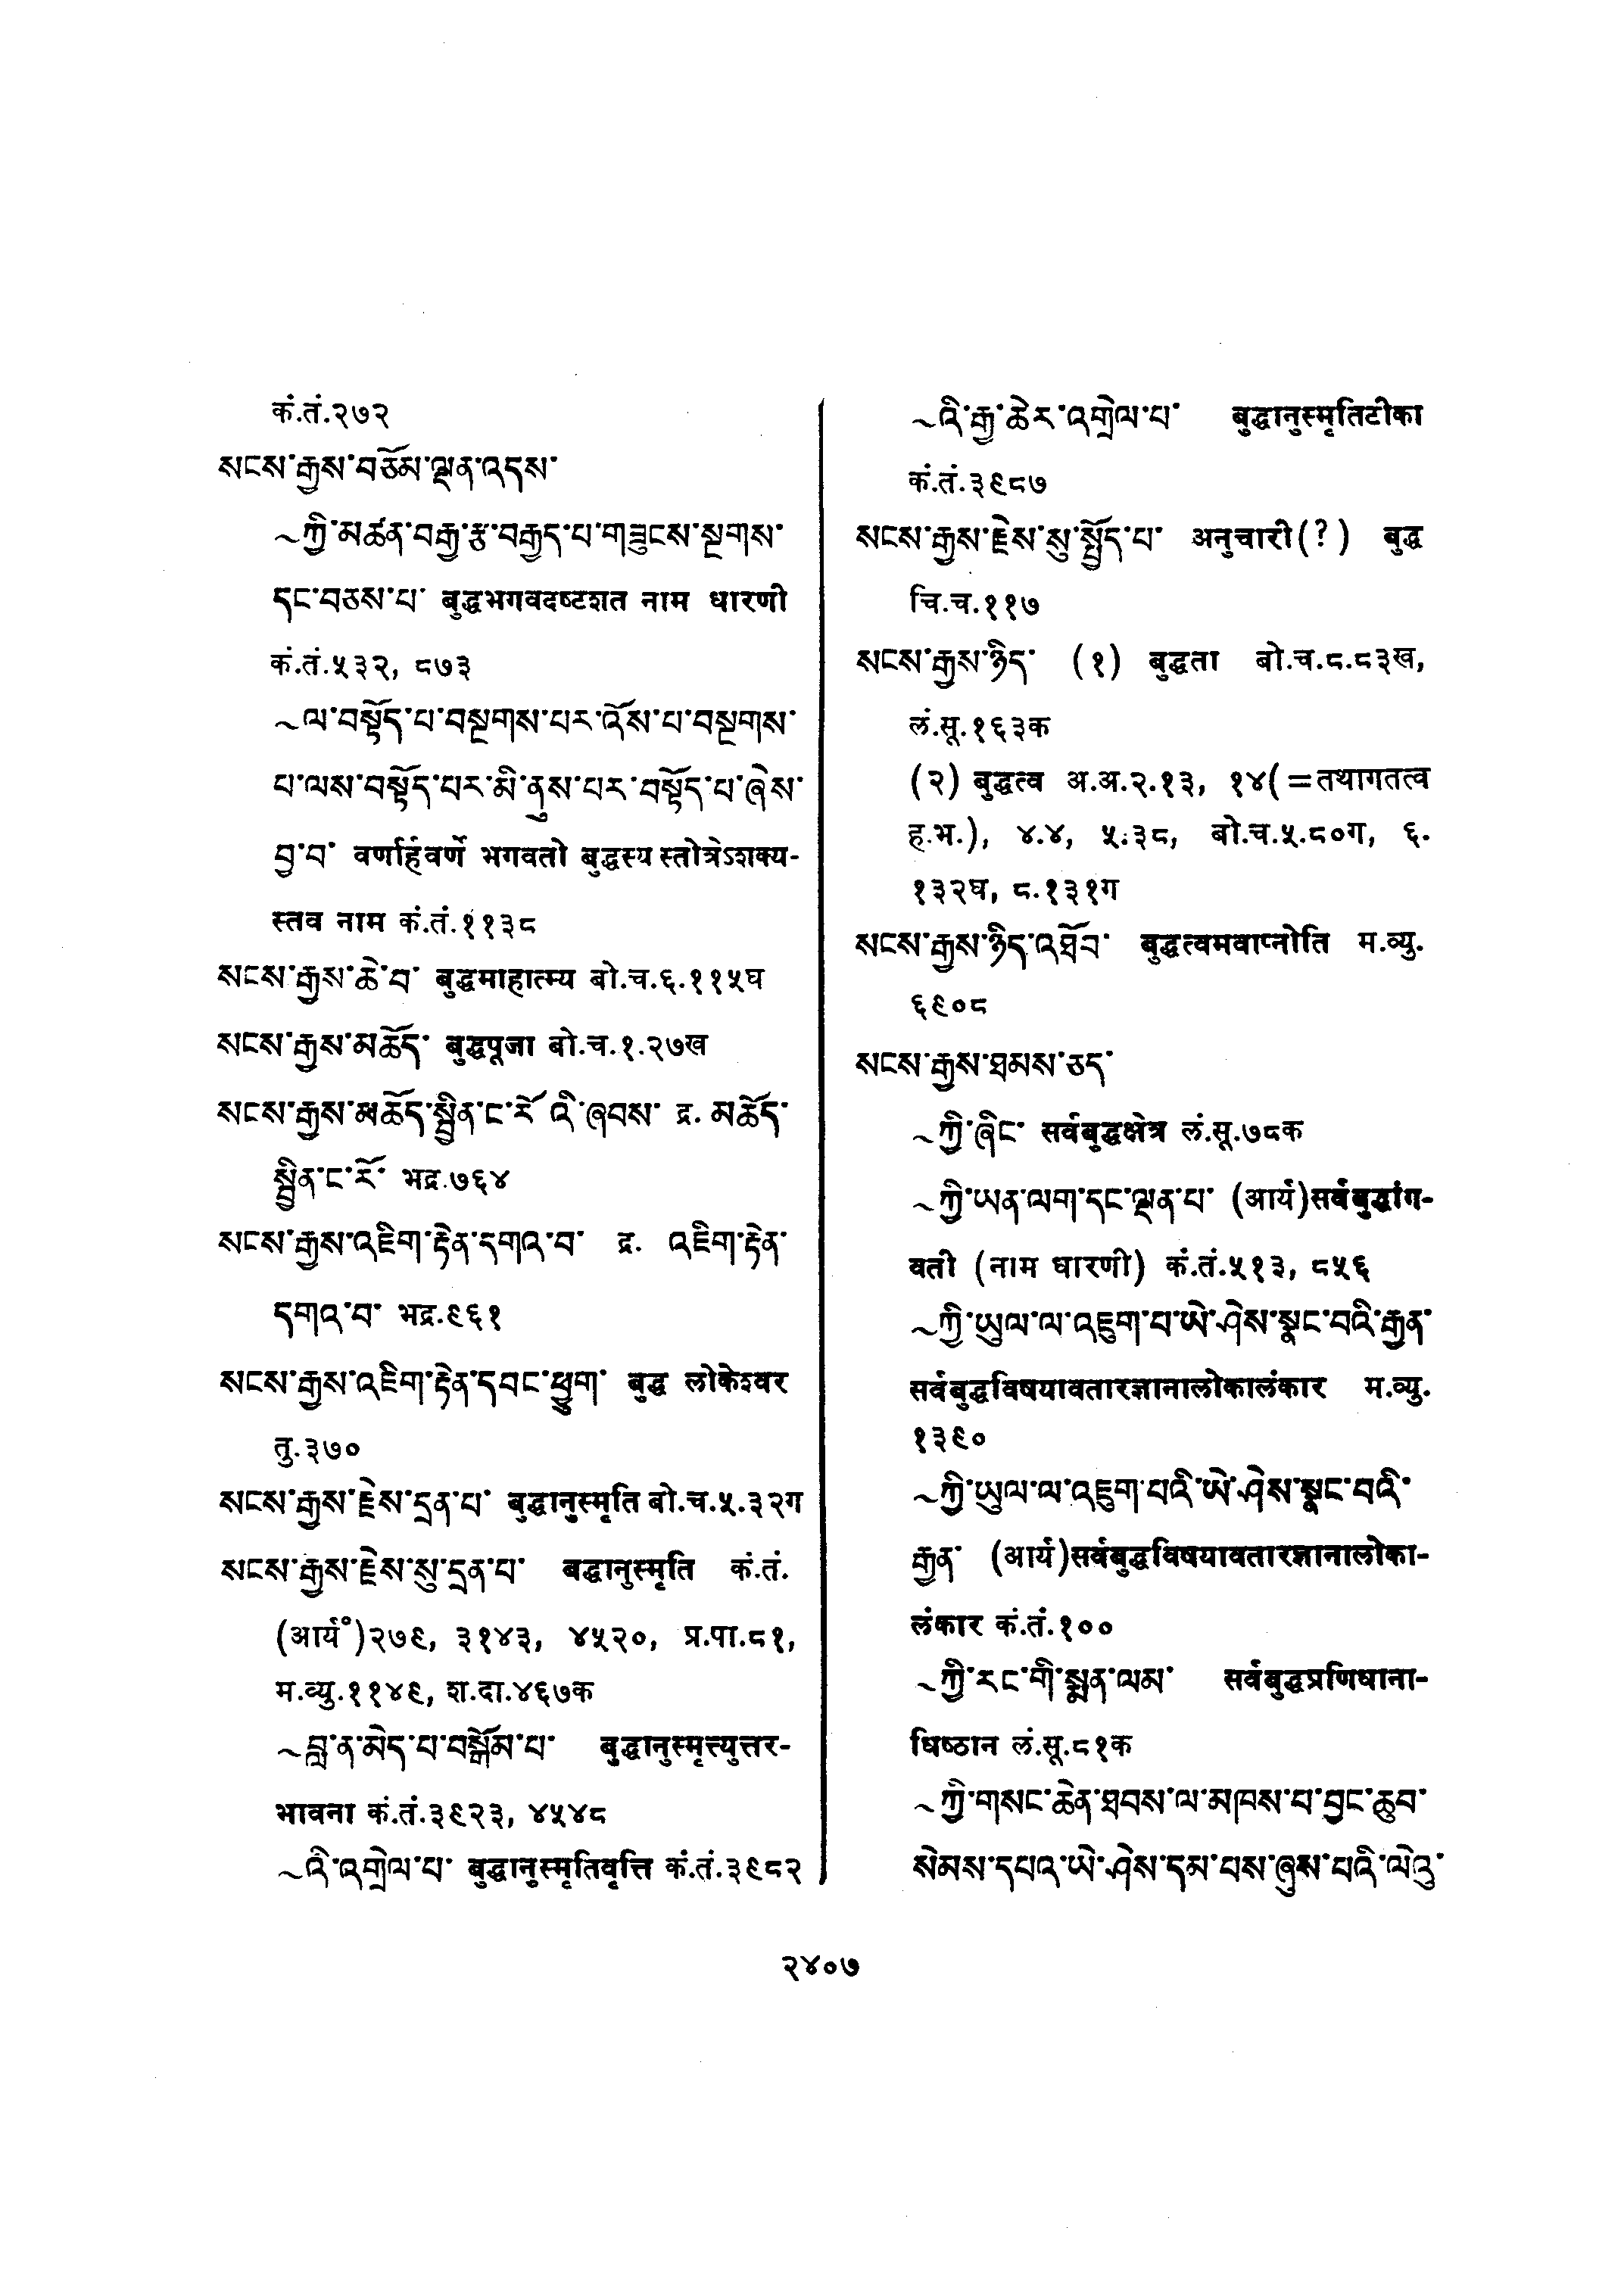 कं.तं.२७२
སངས་རྒྱས་བཅོམ་ལྡན་འདས་
~ཀྱི་མཚན་བརྒྱ་རྩ་བརྒྱད་པ་གཟུངས་སྔགས་
དང་བཅས་པ་ बुद्धभगवदष्टशत नाम धारणी
कं.तं.५३२, ८७३
~ལ་བསྟོད་པ་བསྔགས་པར་འོས་པ་བསྔགས་
པ་ལས་བསྟོད་པར་མི་ནུས་པར་བསྟོད་པ་ཞེས་
བྱ་བ་ वर्णार्हवर्णे भगवतो बुद्धस्य स्तोत्रेऽशक्य-
स्तव नाम कं.तं.११३८
སངས་རྒྱས་ཆེ་བ་ बुद्धमाहात्म्य बो.च.६.११५घ
སངས་རྒྱས་མཆོད་ बुद्धपूजा बो.च.१.२७ख
སངས་རྒྱས་མཆོད་སྦྱིན་ང་རོ་འི་ཞབས་ द्र. མཆོད་
སྦྱིན་ང་རོ་ भद्र.७६४
སངས་རྒྱས་འཇིག་རྟེན་དགའ་བ་ द्र. འཇིག་རྟེན་
དགའ་བ་ भद्र.९६१
སངས་རྒྱས་འཇིག་རྟེན་དབང་ཕྱུག་ बुद्ध लोकेश्वर
तु.३७०
སངས་རྒྱས་རྗེས་དྲན་པ་ बुद्धानुस्मृति बो.च.५.३२ग
སངས་རྒྱས་རྗེས་སུ་དྲན་པ་ बद्धानुस्मृति कं.तं.
(आर्य॰)२७९, ३१४३, ४५२०, प्र.पा.८१,
म.व्यु.११४९, श.दा.४६७क
~བླ་ན་མེད་པ་བསྒོམ་པ་ बुद्धानुस्मृत्त्युत्तर-
भावना कं.तं.३९२३, ४५४८
~འི་འགྲེལ་པ་ बुद्धानुस्मृतिवृत्ति कं.तं.३९८२
~འི་རྒྱ་ཆེར་འགྲེལ་པ་ बुद्धानुस्मृतिटीका
कं.तं.३९८७
སངས་རྒྱས་རྗེས་སུ་སྤྱོད་པ་ अनुचारी(?) बुद्ध
चि.च.११७
སངས་རྒྱས་ཉིད་ (१) बुद्धता बो.च.८.८३ख,
लं.सू.१६३क
(२) बुद्धत्व अ.अ.२.१३, १४(=तथागतत्व
ह.भ.), ४.४, ५.३८, बो.च.५.८०ग, ६.
१३२घ, ८.१३१ग
སངས་རྒྱས་ཉིད་འཐོབ་ बुद्धत्वमवाप्नोति म.व्यु.
६९०८
སངས་རྒྱས་ཐམས་ཅད་
~ཀྱི་ཞིང་ सर्वबुद्धक्षेत्र लं.सू.७८क
~ཀྱི་ཡན་ལག་དང་ལྡན་པ་ (आर्य)सर्वबुद्धांग-
वती (नाम धारणी) कं.तं.५१३, ८५६
~ཀྱི་ཡུལ་ལ་འཇུག་པ་ཡེ་ཤེས་སྣང་བའི་རྒྱན་
सर्वबुद्धविषयावतारज्ञानालोकालंकार म.व्यु.
१३९०
~ཀྱི་ཡུལ་ལ་འཇུག་པའི་ཡེ་ཤེས་སྣང་བའི་
རྒྱན་ (आर्य)सर्वबुद्धविषयावतारज्ञानालोका-
लंकार कं.तं.१००
~ཀྱི་རང་གི་སྨོན་ལམ་ सर्वबुद्धप्रणिधाना-
धिष्ठान लं.सू.८१क
~ཀྱི་གསང་ཆེན་ཐབས་ལ་མཁས་པ་བྱང་ཆུབ་
སེམས་དཔའ་ཡེ་ཤེས་དམ་པས་ཞུས་པའི་ལེའུ་
२४०७